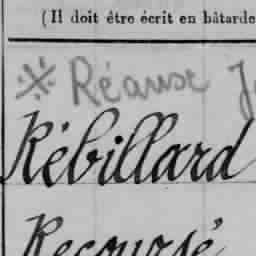 (Il doit être écrit en bâtarde
※ Réause J
Rébillard
Recoursé